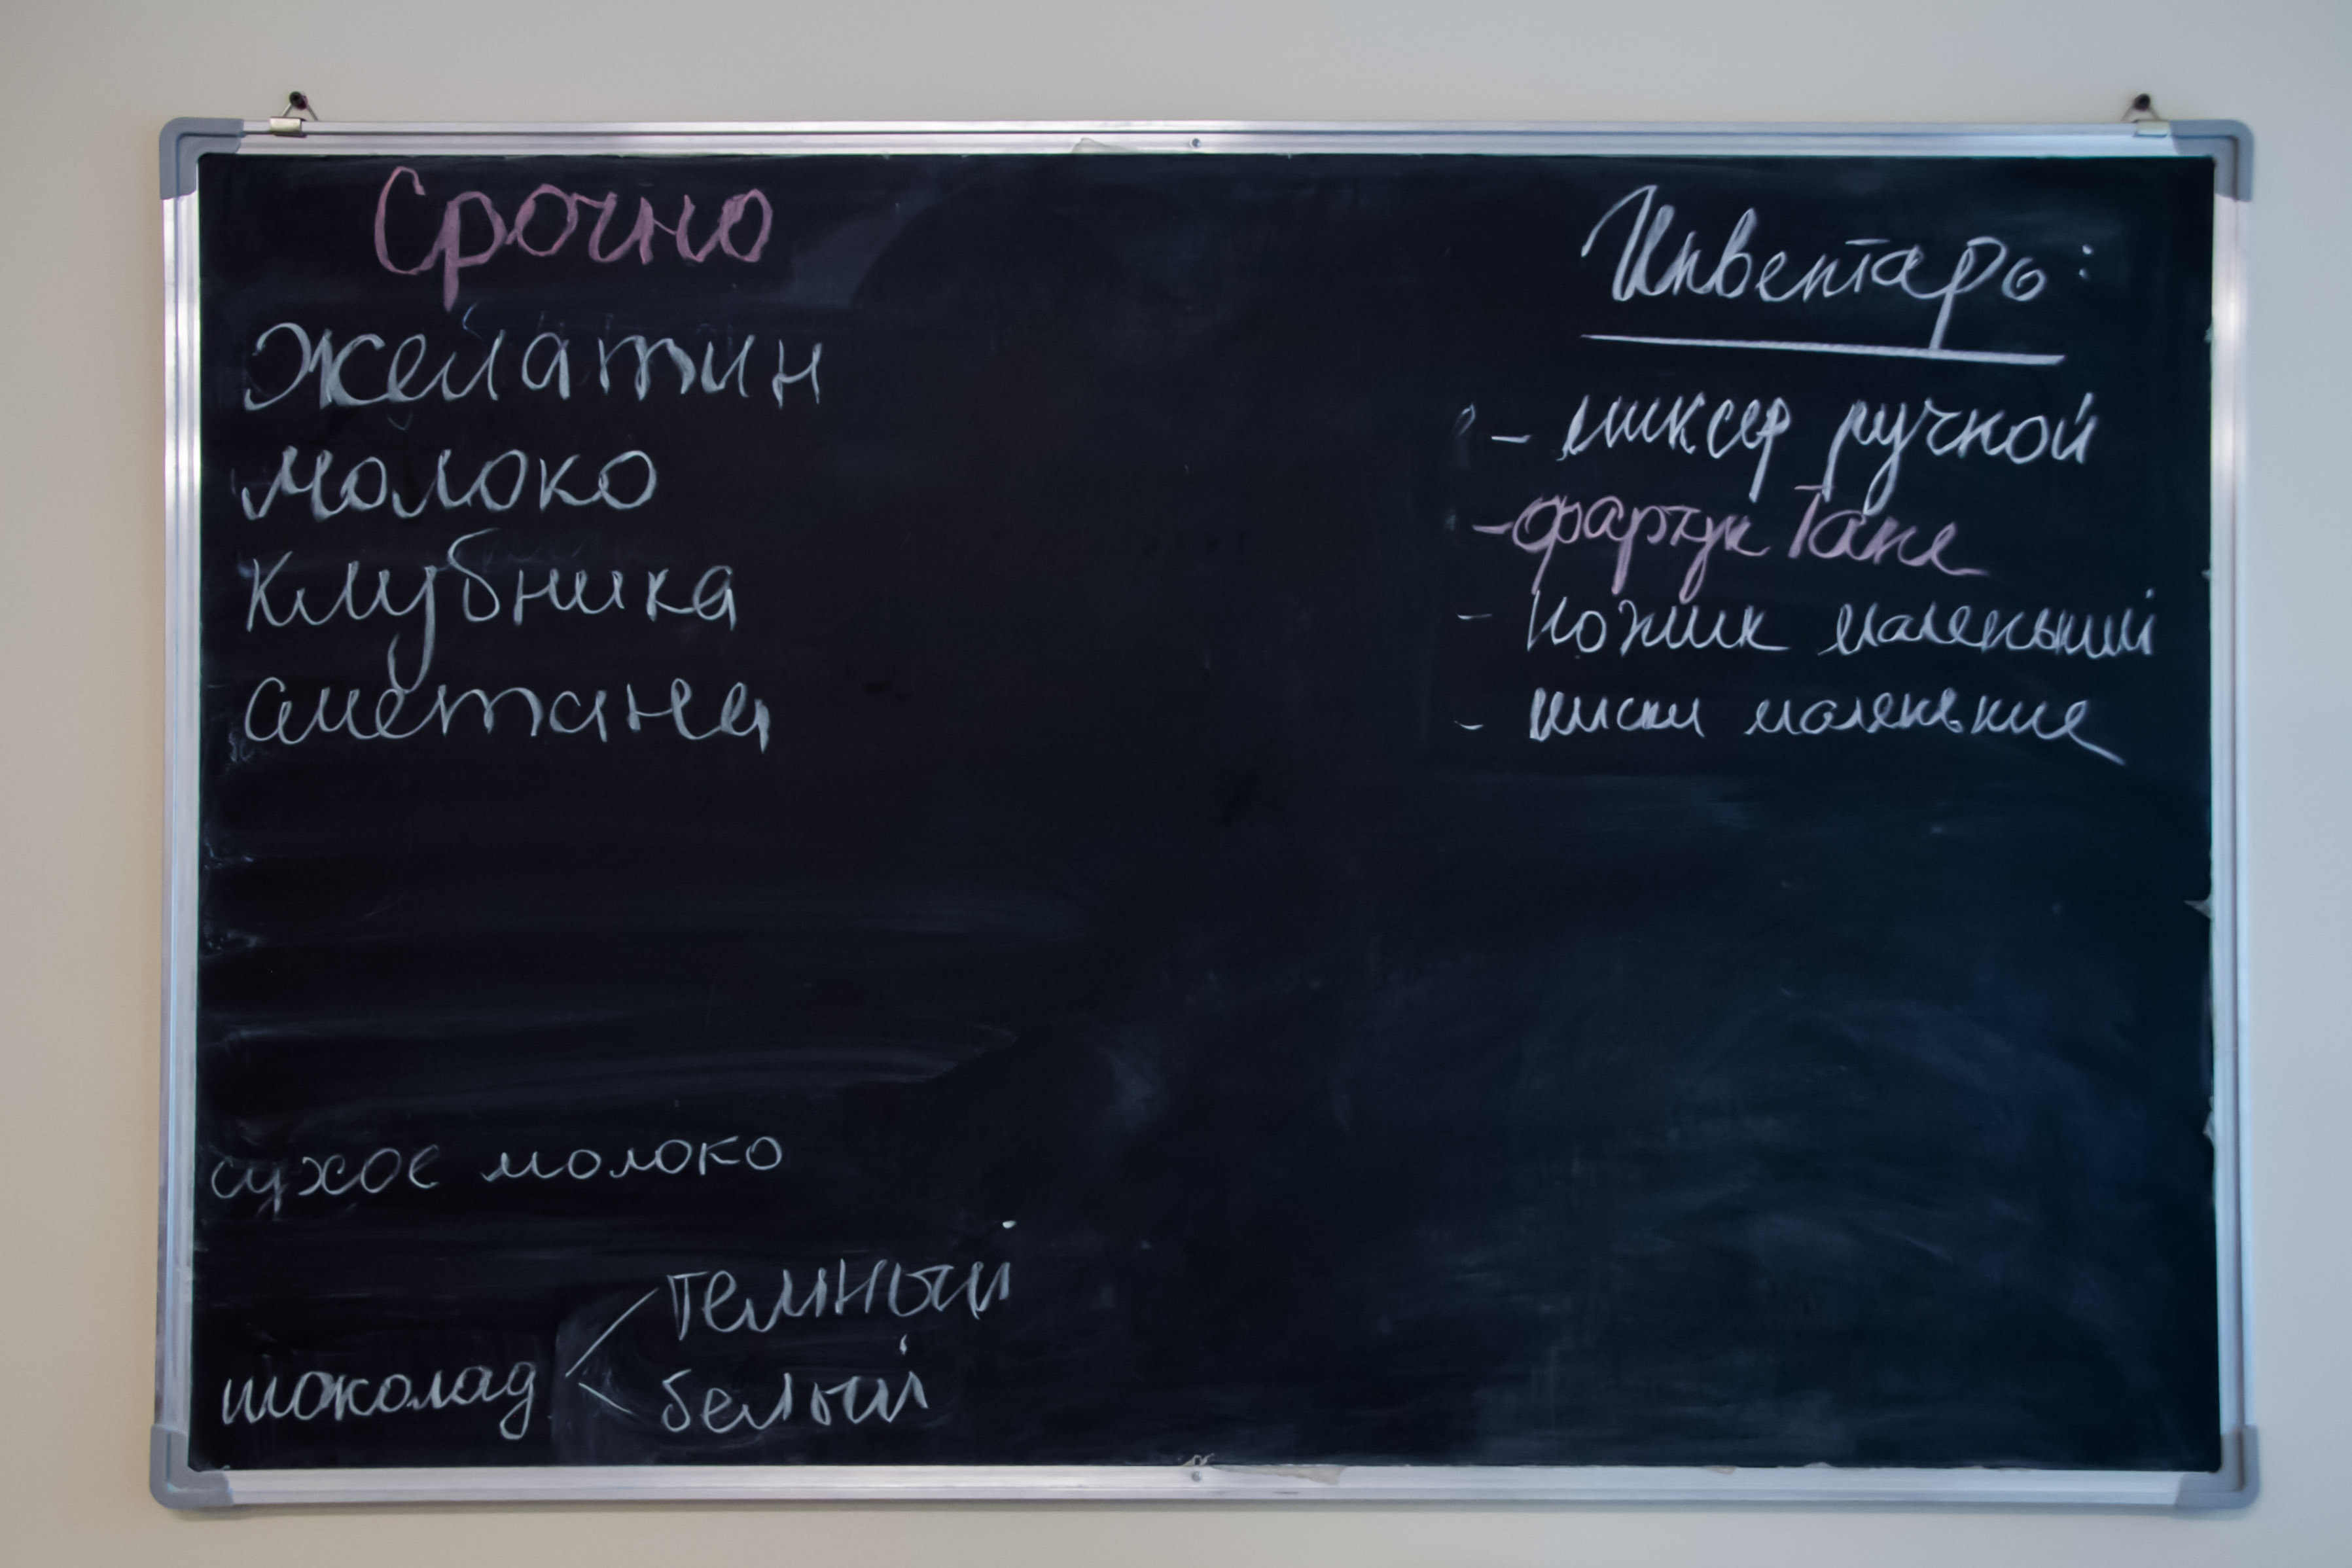 Срочно
желатин
молоко
клубника
сметана
сухое молоко
шоколад
темный
белый
Инвентарь:
- миксер ручной
- фартук Тане
- ножик маленький
- миски маленькие